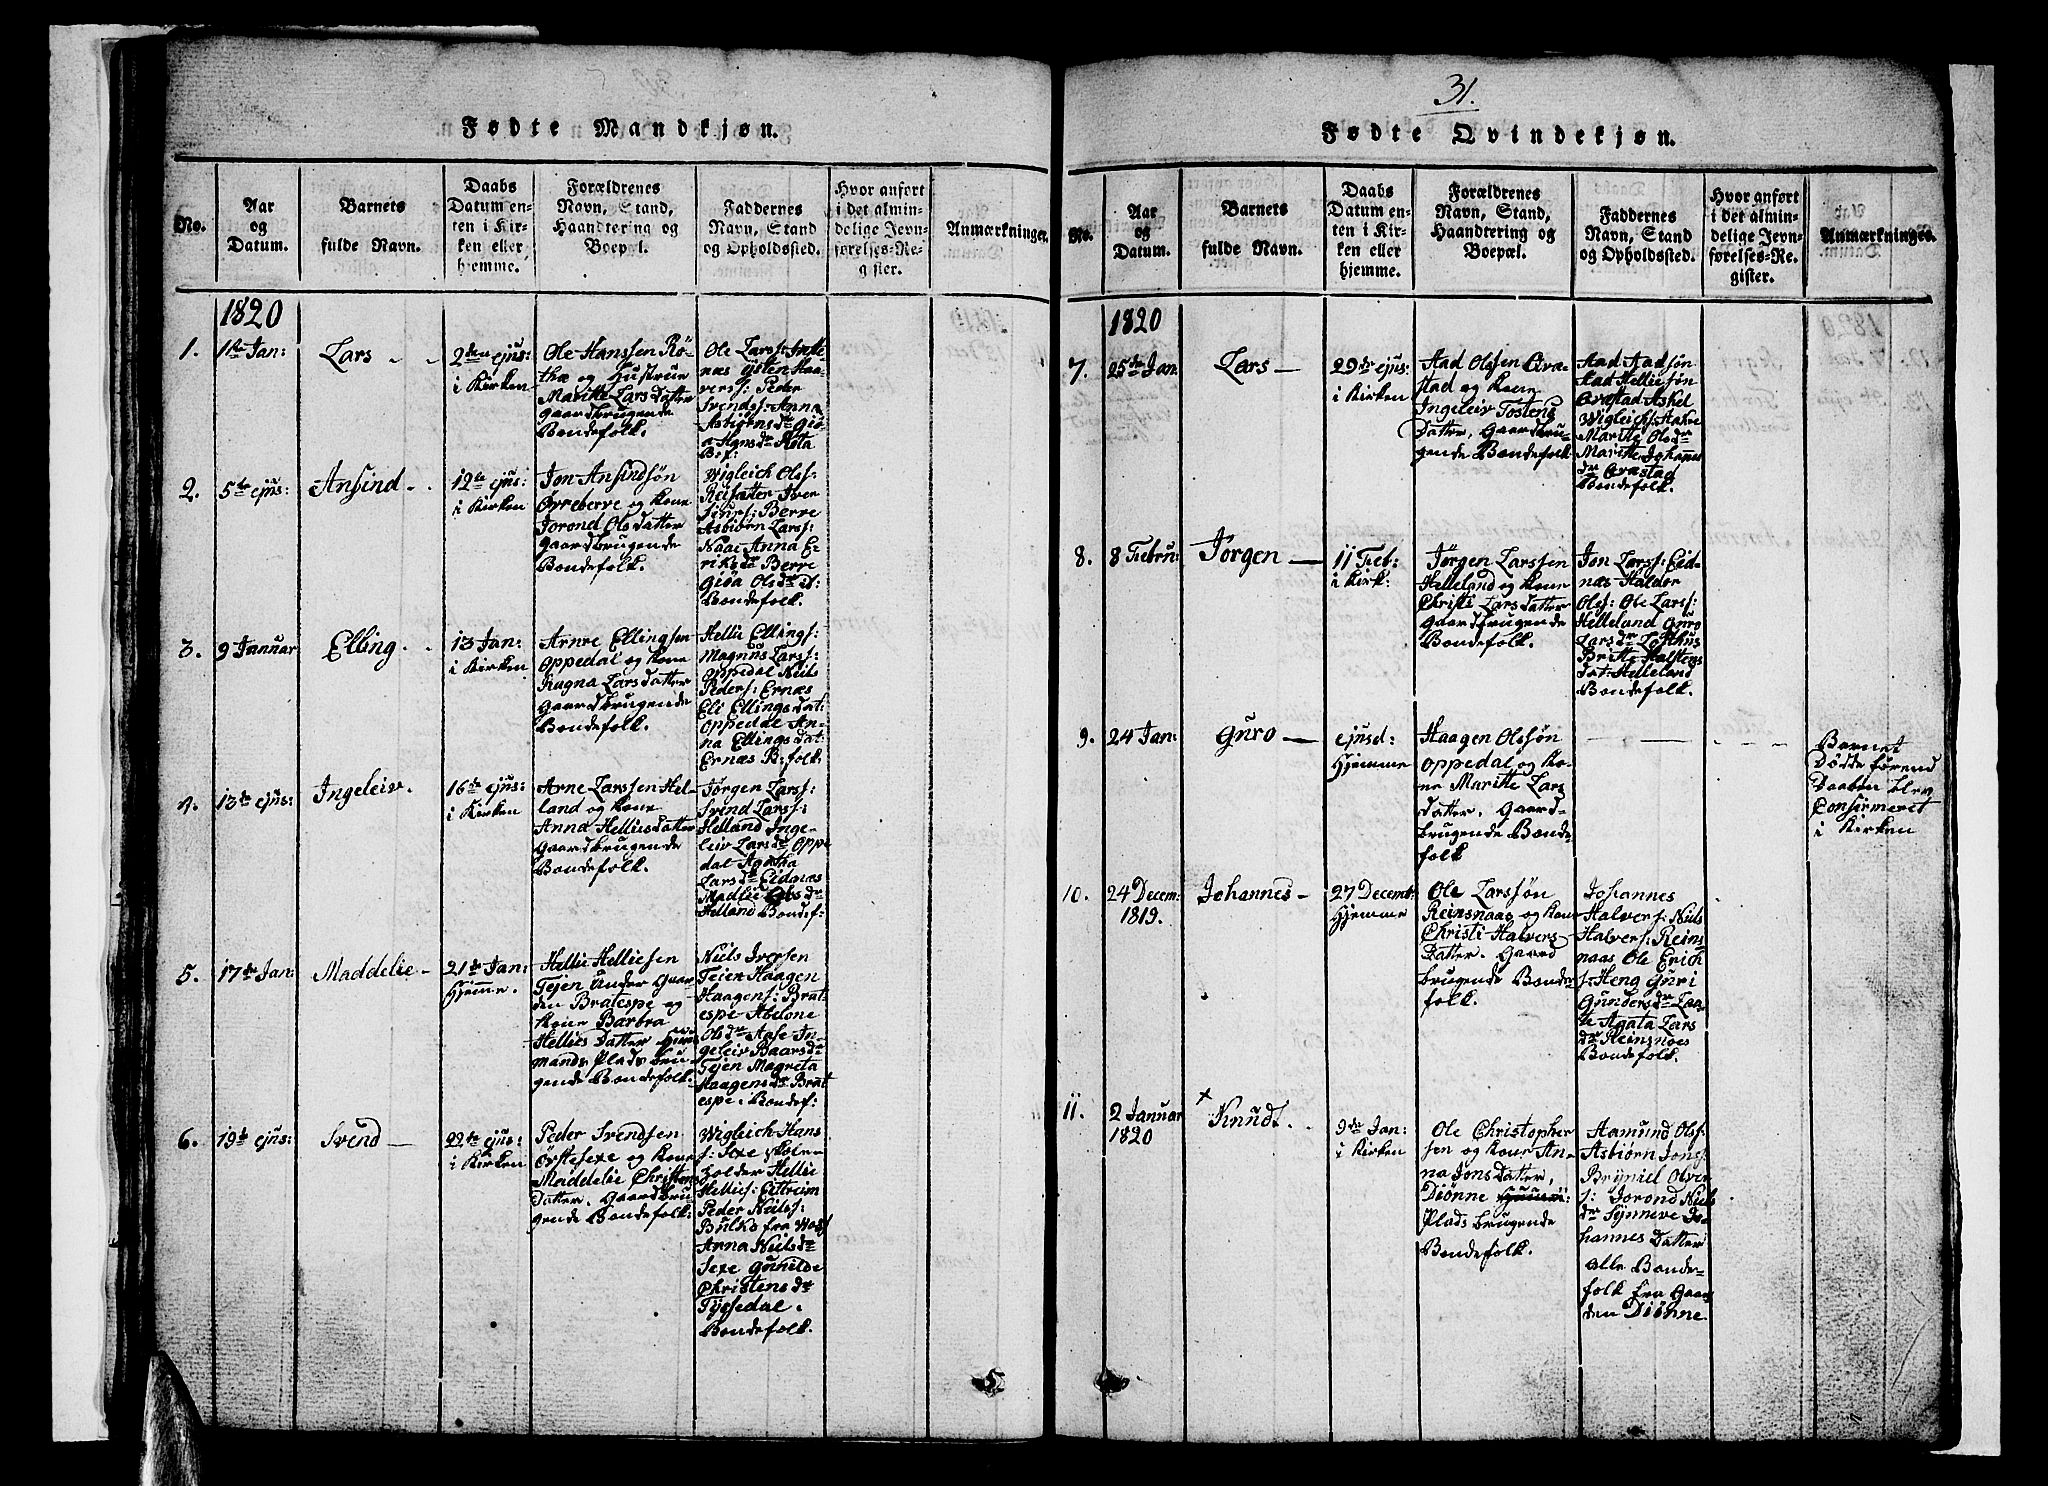 31.
Fødte Mandkjøn.
No.
Aar
og
Datum.
Barnets
fulde Navn.
Daabs
Datum en-
ten i Kir-
ken eller
hjemme.
Forældrenes
Navn, Stand,
Haandtering og
Boepæl.
Faddernes
Navn, Stand
og Opholdssted.
Hvor anført
i det almin-
delige Jevn-
førelses-Re-
gister.
Anmærkninger.
1820
1.
1te Jan:
Lars
2den ejus:
i Kirken
Ole Hanssen Rø-
thæ og Hustrue
Maritte Lars datter
gaardbrugende
Bondefolk.
Ole Larss:
næs Ysten Haa-
verss: Peder
Svends: Anna
Asbiørnsdr Giø-
a Agnsdr Kota
Bof:
2.
5te ejus:
Ansind
12te ejus:
i Kirken
Jon Ansindsøn
Øvreberre og Kone
Jorond Olsdatter
gaardbrugende
Bondefolk.
Wigleich Olss:
Reisæter Iver
Siurs: Berre
Asbiørn Larss:
Naae Anna E-
riksdr Berre
Giøa Olsdr
Bondefolk.
3.
9 Januar
Elling
13 Jan:
i Kirken
Arnve Ellingsen
Oppedal og Kone
Ragna Larsdatter
gaardbrugende
Bondefolk.
Hellie Ellings:
Magnus Larss:
Oppedal Niels
Peders: Ernæs
Eli Ellingsdat:
Oppedal An-
na Ellingsdat:
Ernæs B:folk.
4.
13de ejus:
Ingeleiv.
16de ejus:
i Kirken
Arne Larssen Hel-
land og Kone
Anna Helliesdatter
gaardbrugende
Bondefolk.
Jørgen Larss:
Svend Larss:
Helland Inge-
leiv Larsdr Oppe
dal Agatha
Larsdr Eidnæs
Madlie Olsdr
Helland Bondef:
5.
17de Jan:
Maddelie
21de Jan:
Hjemme.
Hellie Helliesen
Tejen under Gaar-
den Bratespe og
Kone Barbra
Hellies Datter Huus
mands Plads bru-
gende Bondefolk.
Niels Iversen
Teien Haagen
Haagens: Brat
espe Abelone
Olsdr Aase In-
geleiv Baarsdr
Tejen Magreta
Haagensdr Brat
espe. Bondef:
6.
19de ejus:
Svend
22de ejus:
i Kirken
Peder Svendsen
Ørstesexe og Kone
Maddelie Christens
Datter. Gaardbru-
gende Bondefolk.
Wigleich Hans
s: Sexe Skole-
holder Hellie
Hellies: Eittreim
Peder Niilss:
Bulko fra Woss
Anna Nielsdr
Sexe Gunilde
Christensdr
Tÿssedal.
Bondefolk.
Fødte Qvindekjøn.
No.
Aar
og
Datum.
Barnets
fulde Navn.
Daabs
Datum en-
ten i Kir-
ken eller
hjemme.
Forældrenes
Navn, Stand,
Haandtering og
Boepæl.
Faddernes
Navn, Stand
og Opholdssted.
Hvor anført
i det almin-
delige Jevn-
førelses-Re-
gister.
Anmærkninger.
1820
7.
25de Jan
Lars
29de ejus:
i Kirken
Aad Olssen Qva-
stad og Kone
Ingeleiv Tostens
Datter, Gaardbru-
gende Bondefolk
Aad Aadsøn
Aad Helliesøn
Qvastad Askel
Wigleichs: Aakre
Maritte Olsdr
Maritte Johannes
dr Qvastad
Bondefolk.
8.
8 Febru:
Jørgen
11 Feb:
i Kirk:
Jørgen Larssen
Helleland og Kone
Christi Larsdatter
Gaardbrugende
Bondefolk.
Jon Larss: Eid-
næs Haldor
Olss: Ole Larss:
Helleland Guro
Larsdr Lofthuus
Britte Halstens
dat: Helleland
Bondefolk.
9.
24 Jan:
Guro
ejusd:
Hjemme
Haagen Olssøn
Oppedal og Ko-
ne Maritte Lars
datter. Gaard-
brugende Bonde-
folk
Barnet
Døde førend
Daaben blev
Confirmeret
i Kirken
10.
24 Decem:
1819.
Johannes
27 Decemb:
Hjemme
Ole Larssøn
Reinsnaas og Kone
Christi Halvers-
Datter. Gaard
brugende Bonde-
folk.
Johannes
Halvers: Niels
Halvers: Reins-
naas Ole Erich
s: Heng Guri
Gundersdr Laa-
te Agata Lars
dr Reinsnoes
Bondefolk.
11.
2 Januar
1820
Knudt
9de Jan:
i Kirken
Ole Christopher
sen og Kone An-
na Jons Datter,
Diønne
Plads brugende
Bondefolk.
Aamund Olss:
Asbiørn Jonss:
Brÿniel Olver
s: Jorond Niels
dr Sÿnneve Jo-
hannes Datter
alle Bonde-
folk fra Gaar
den Diønne